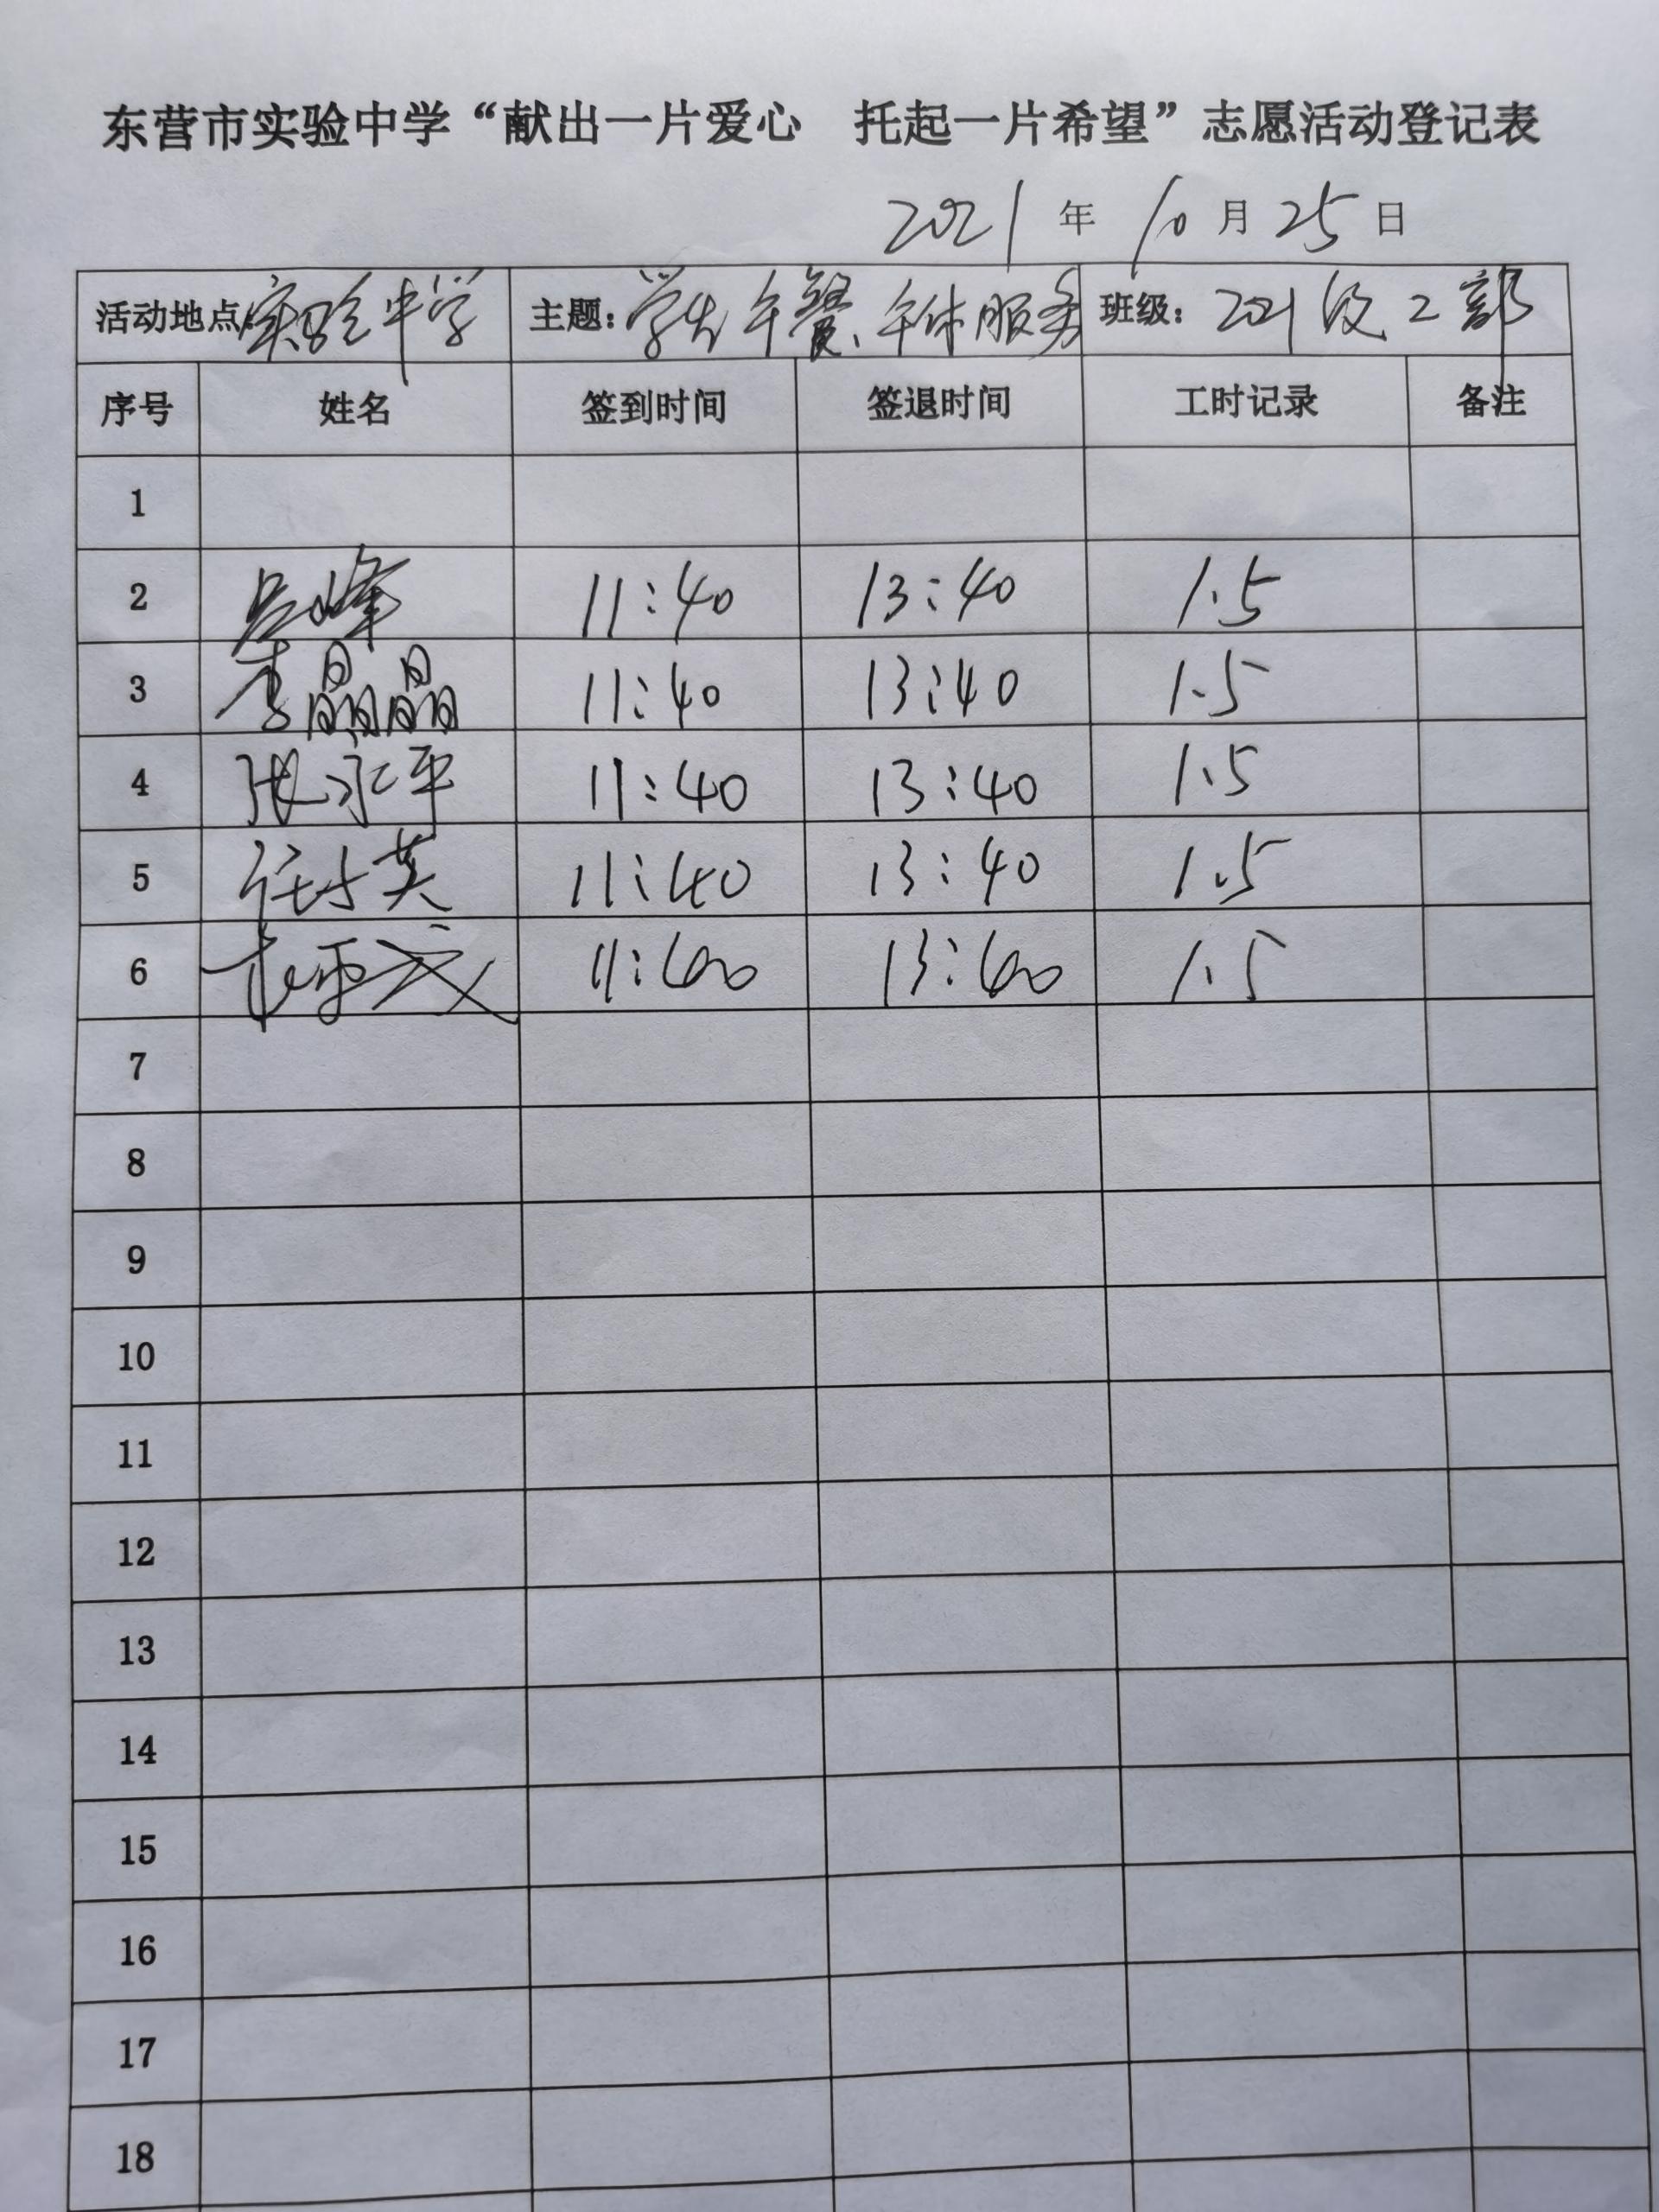 东营市实验中学“献出一片爱心 托起一片希望”志愿活动登记表
2021年10月25日
活动地点:实验中学 主题:学生午餐、午休服务 班级:2021级2部
序号 姓名 签到时间 签退时间 工时记录 备注
1
2 吕峰 11:40 13:40 1.5
3 李晶晶 11:40 13:40 1.5
4 张永平 11:40 13:40 1.5
5 任小英 11:40 13:40 1.5
6 11:40 13:40 1.5
7
8
9
10
11
12
13
14
15
16
17
18